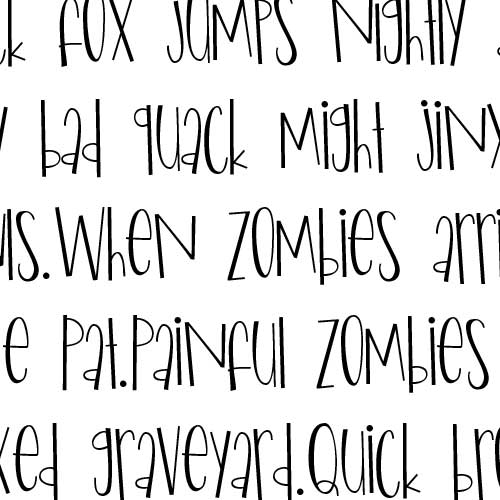 ck fox jumps nightly
y bad quack might jinx
wls. When zombies arri
e pat. Painful zombies
xed graveyard. Quick bro